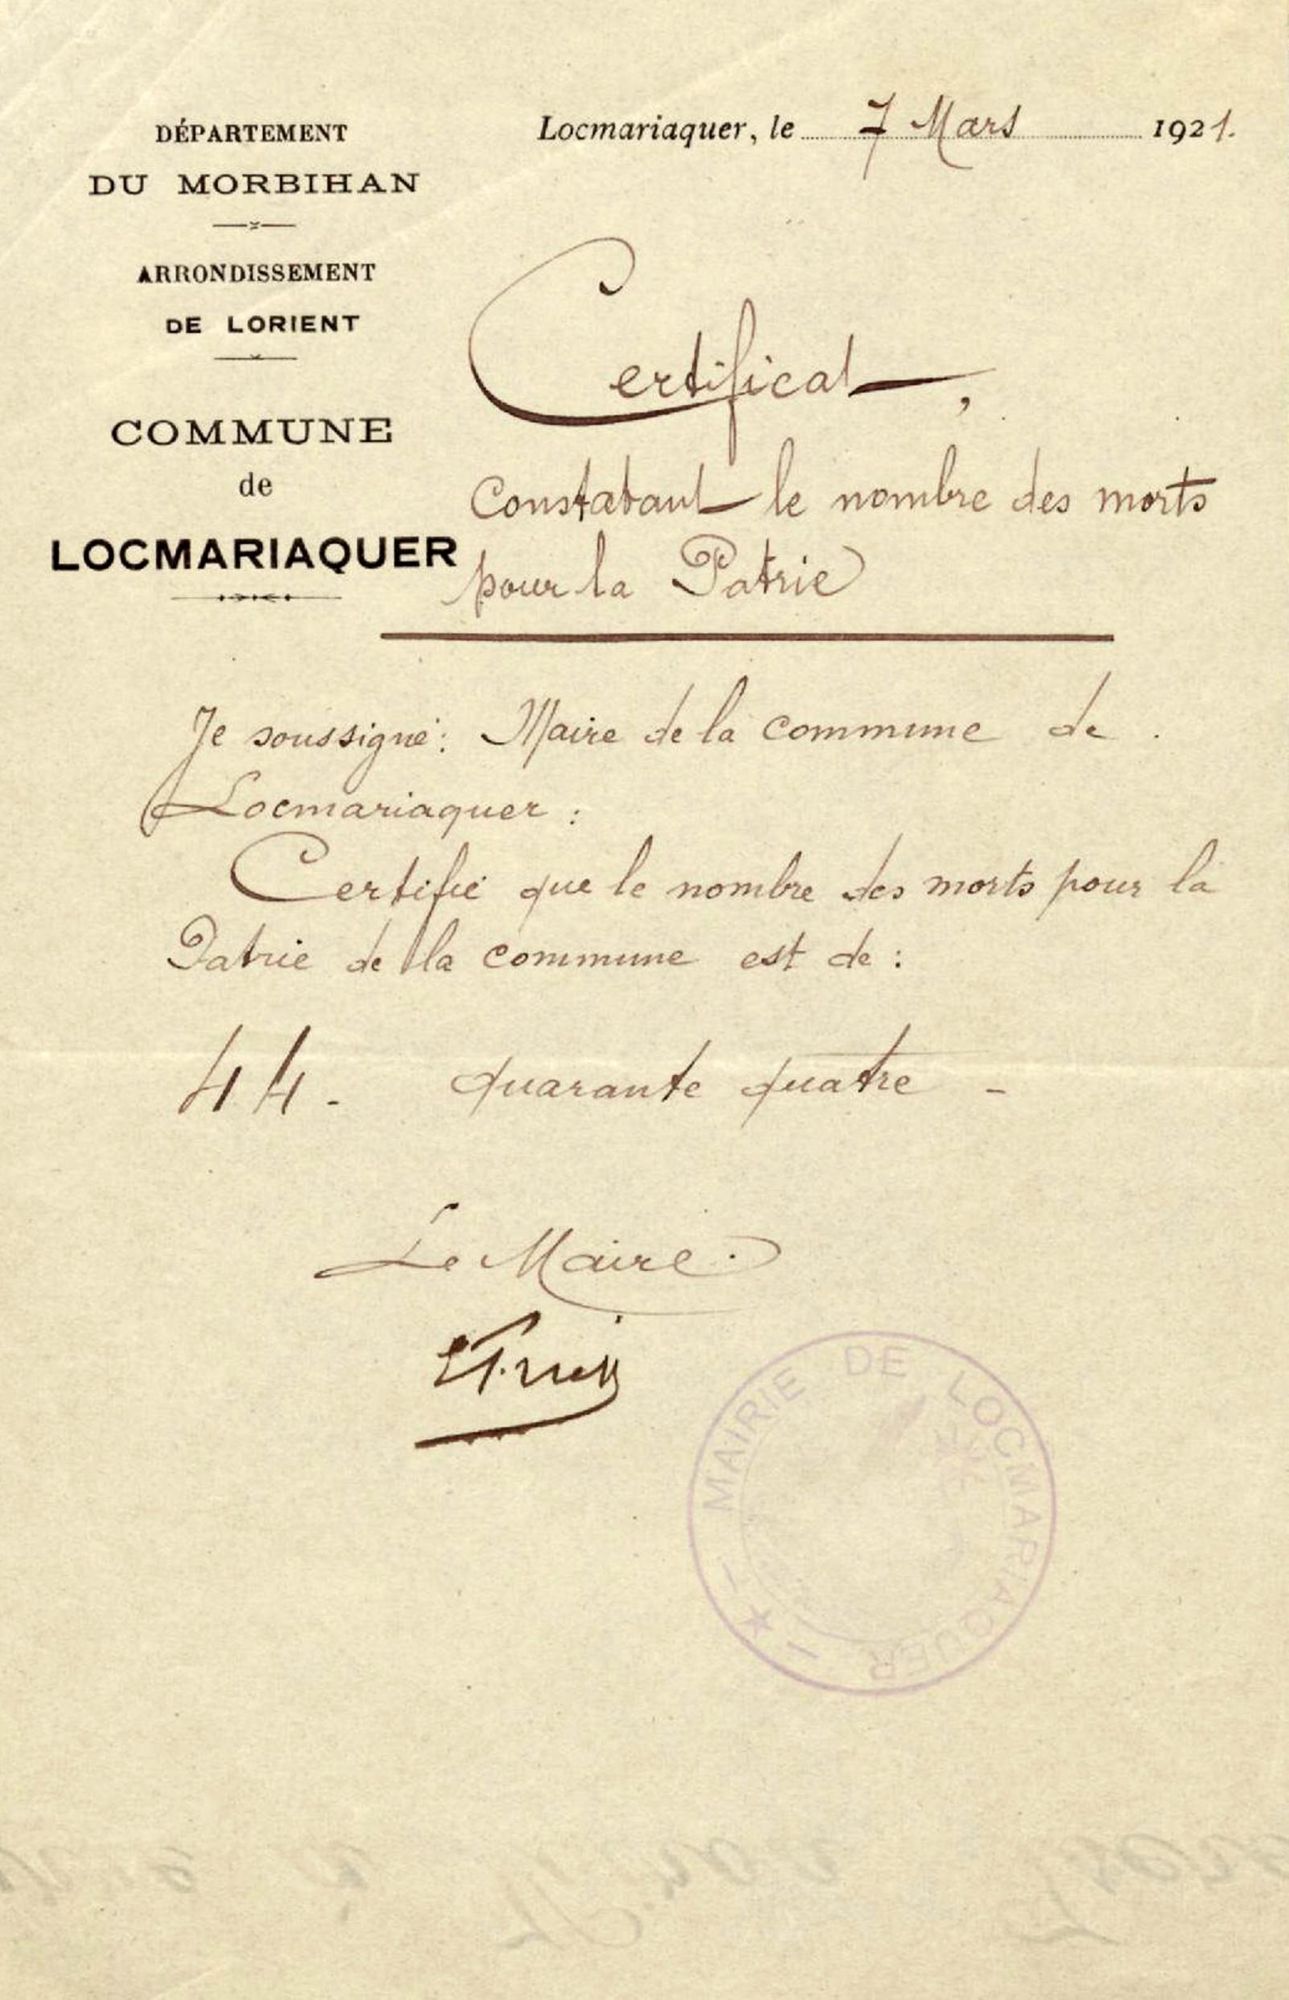 DÉPARTEMENT
DU MORBIHAN
ARRONDISSEMENT
DE LORIENT
COMMUNE
de
LOCMARIAQUER
Locmariaquer, le 7 Mars 1921.
Certificat,
Constatant le nombre des morts
pour la Patrie
Je soussigné: Maire de la commune de
Locmariaquer :
Certifié que le nombre des morts pour la
Patrie de la commune est de :
44 - quarante quatre -
Le Maire.
MAIRIE DE LOCMARIAQUER